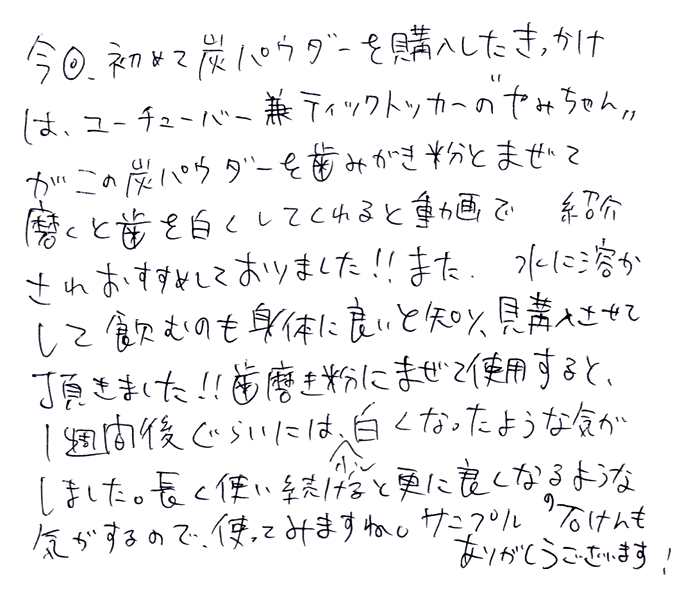 今回、初めて炭パウダーを購入したきっかけ
は、ユーチューバー兼ティックトッカーの"やみちゃん"
がこの炭パウダーを歯みがき粉とまぜて
磨くと歯を白くしてくれると動画で 紹介
されおすすめしておりました!!また、水に溶か
して飲むのも身体に良いと知り、購入させて
頂きました!!歯磨き粉にまぜて使用すると、
1週間後ぐらいには、少し白くなったような気が
しました。長く使い続けると更に良くなるような
気がするので、使ってみますね。サンプルの石けんも
ありがとうございます!